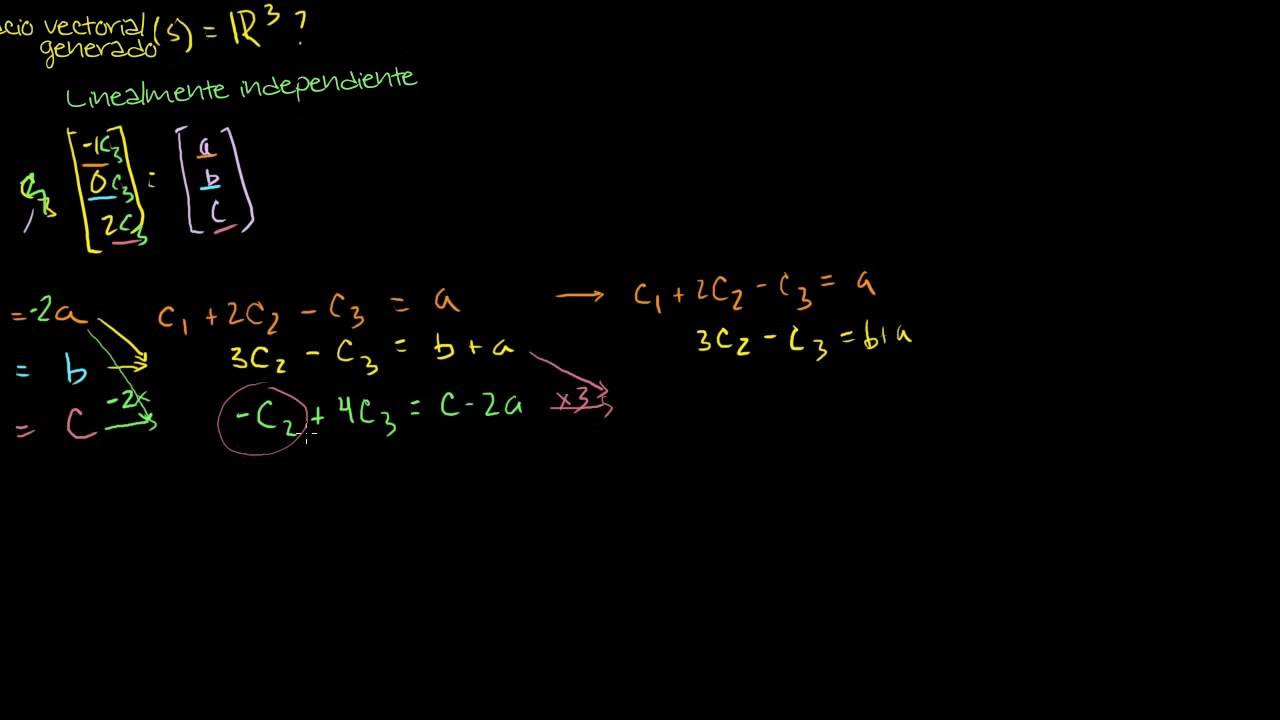 cio vectorial (S) = ℝ³ ?
generado
Linealmente independiente
-1C₃ a
0C₃ = b
2C₃ C
= -2a C₁ + 2C₂ - C₃ = a → C₁ + 2C₂ - C₃ = a
= b 3C₂ - C₃ = b + a 3C₂ - C₃ = b + a
= C -2x -C₂ + 4C₃ = C - 2a x3 +